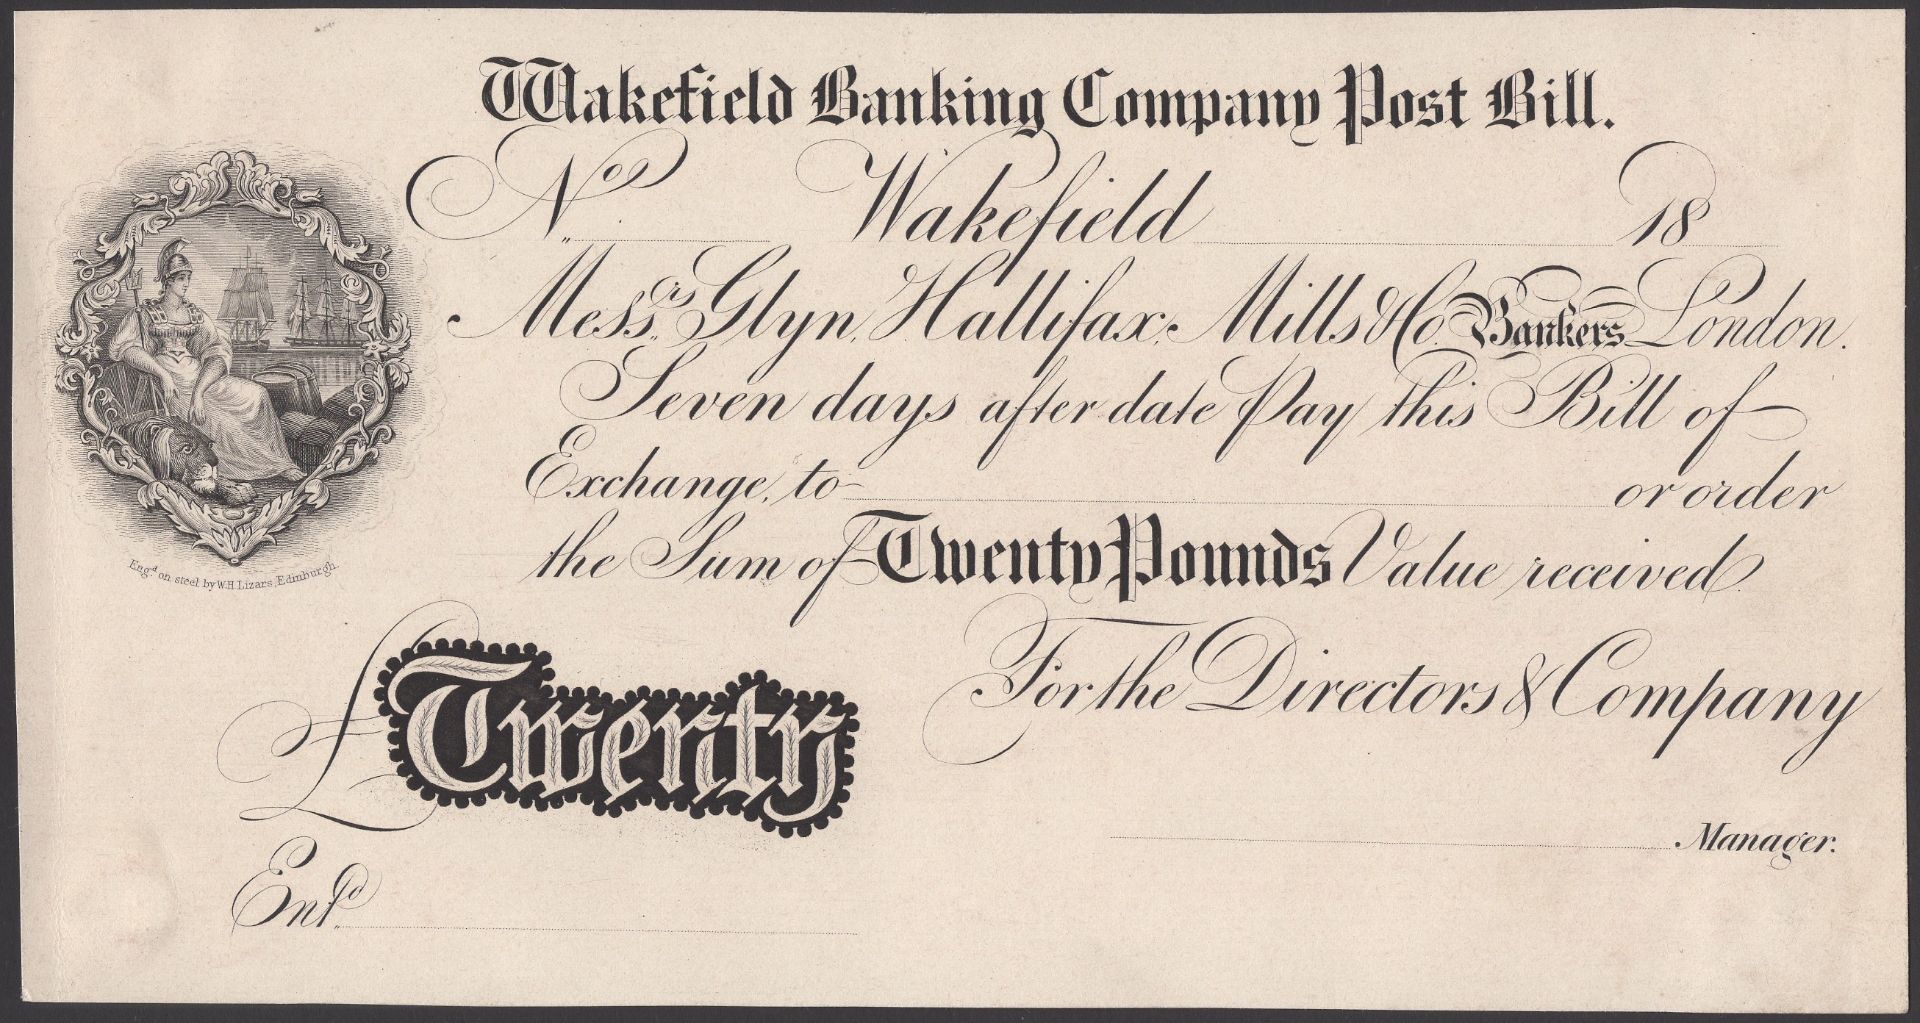 Wakefield Banking Company Post Bill.
No. Wakefield 18
Messrs. Glyn, Hallifax, Mills & Co. Bankers London.
Seven days after date Pay this Bill of
Exchange, to or order
the Sum of Twenty Pounds Value received
Engd. on steel by W.H.Lizars, Edinburgh.
For the Directors & Company
£ Twenty
Manager.
Entd.